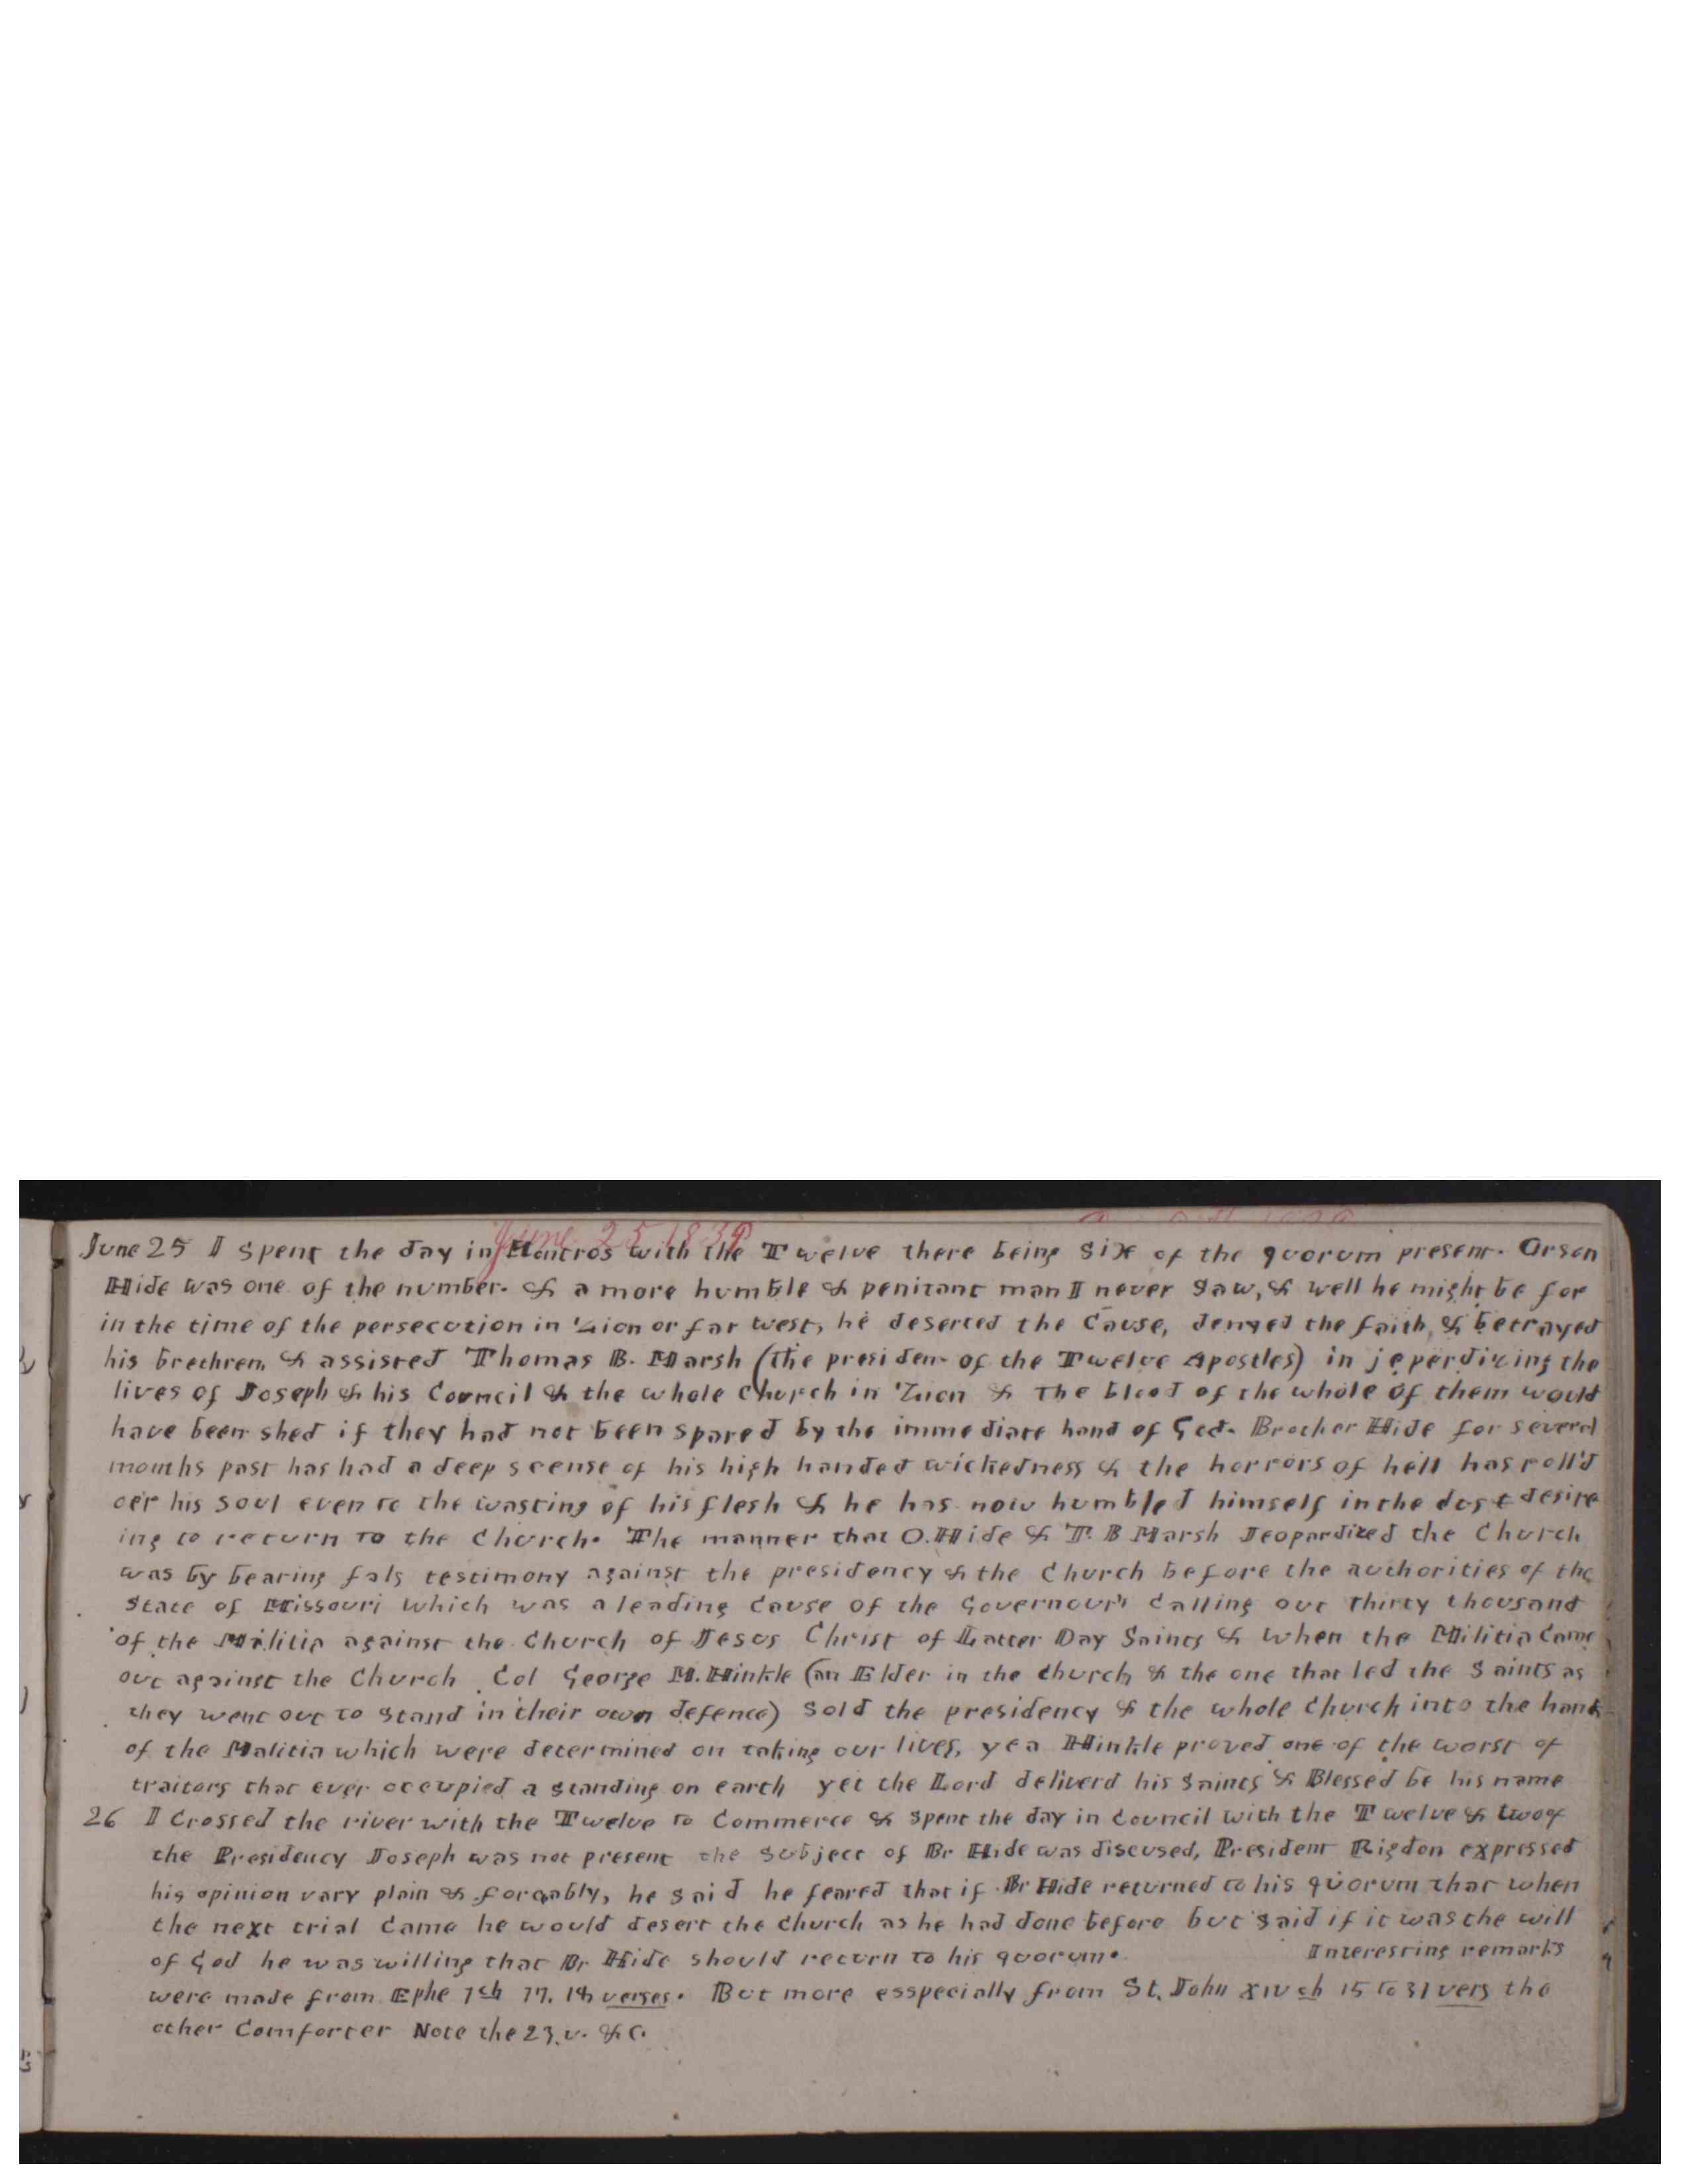 June 25 1839
June 25 I spent the day in Montros with the Twelve there being six of the quorum present. Orson
Hide was one of the number. & a more humble & penitant man I never saw, & well he might be for
in the time of the persecution in Zion or far west, he deserted the Cause, denyed the faith, & betrayed
his brethren, & assisted Thomas B. Marsh (the presiden- of the Twelve Apostles) in jeperdizing the
lives of Joseph & his Council & the whole Church in Zion & The blood of the whole of them would
have been shed if they had not been spared by the immediate hand of God. Brother Hide for severel
months past has had a deep scense of his high handed wickedness & the horrors of hell has roll'd
oer his soul even to the wasting of his flesh & he has now humbled himself in the dust desire
ing to return to the Church. The manner that O. Hide & T. B Marsh Jeopardized the Church
was by bearing fals testimony against the presidency & the Church before the authorities of the
State of Missouri which was a leading cause of the Governour's calling out thirty thousand
of the Militia against the Church of Jesus Christ of Latter Day Saints & when the Militia Came
out against the Church Col George M. Hinkle (an Elder in the church & the one that led the Saints as
they went out to stand in their own defence) sold the presidency & the whole Church into the hands
of the Malitia which were determined on taking our lives, yea Hinkle proved one of the worst of
traitors that ever occupied a standing on earth yet the Lord deliverd his Saints & Blessed be his name
26 I Crossed the river with the Twelve to Commerce & spent the day in Council with the Twelve & two of
the Presidency Joseph was not present the subject of Br Hide was discused, President Rigdon expressed
his opinion vary plain & forcably, he said he feared that if Br Hide returned to his quorum that when
the next trial came he would desert the Church as he had done before but said if it was the will
of God he was willing that Br Hide should return to his quorum. Interesting remarks
were made from Ephe 1 ch 17. 18 verses. But more esspecially from St. John XIV ch 15 to 31 vers the
other Comforter Note the 23. v. & c.